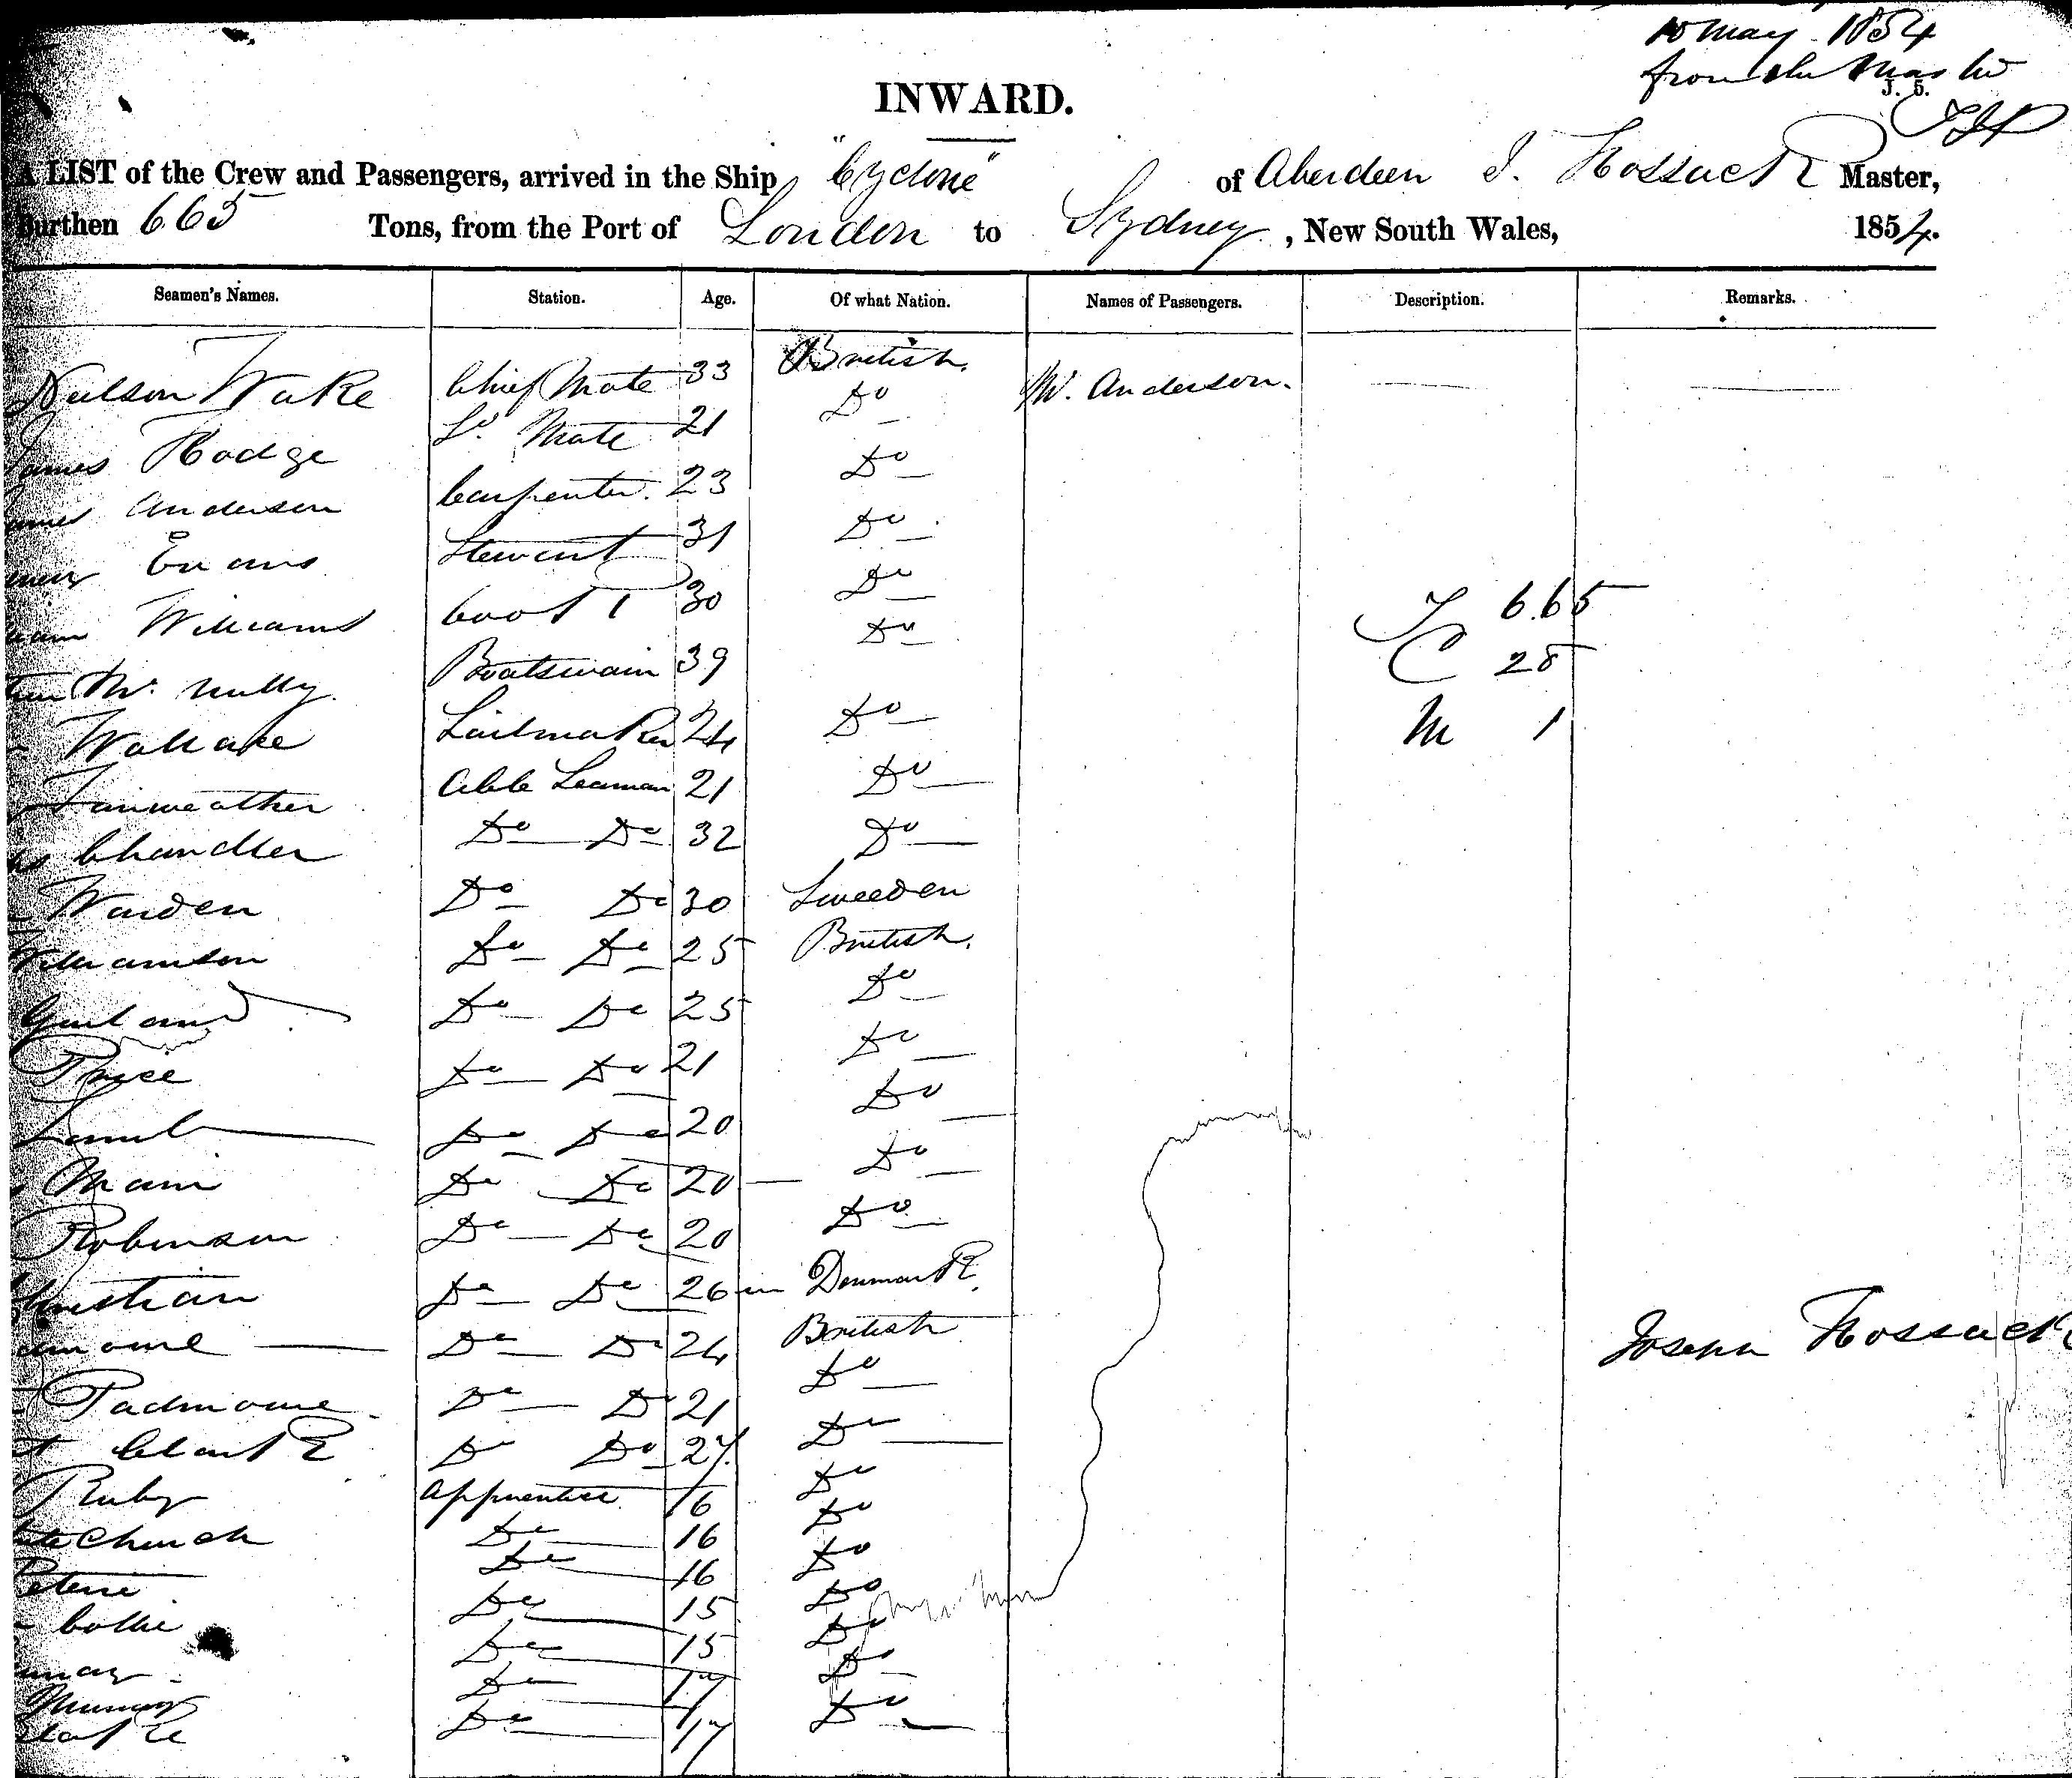 10 May 1854
from the Master
J. 5.
INWARD.
A LIST of the Crew and Passengers, arrived in the Ship "Cyclone" of Aberdeen J. Hossack Master,
Burthen 665 Tons, from the Port of London to Sydney, New South Wales, 1854.
Seamen's Names. Station. Age. Of what Nation. Names of Passengers. Description. Remarks.
Neilson Wake Chief Mate 33 British. W. Anderson.
James Hodge 2d. Mate 21 Do
James Anderson Carpenter. 23 Do
Evans Steward 31 Do
Williams Cook 30 Do
McNully. Boatswain 39 Do
Wallace Sailmaker 24 Do
Fairweather Able Seaman 21 Do
Chandler Do Do 32 Do
Warden Do Do 30 Sweeden
Williamson Do Do 25 British.
Garland Do Do 25 Do
Price Do Do 21 Do
Lamb Do Do 20 Do
Main Do Do 20 Do
Robinson Do Do 20 Do
Christian Do Do 26 Denmark.
Do Do 24 British
Padmoure Do Do 21 Do
Clark Do Do 27 Do
Ruby Apprentice 16 Do
Church Do 16 Do
Peterie Do 16 Do
Collie Do 15 Do
Do 15 Do
Murray Do 17 Do
Do 17 Do
T 665
C 28
M 1
Joseph Hossack